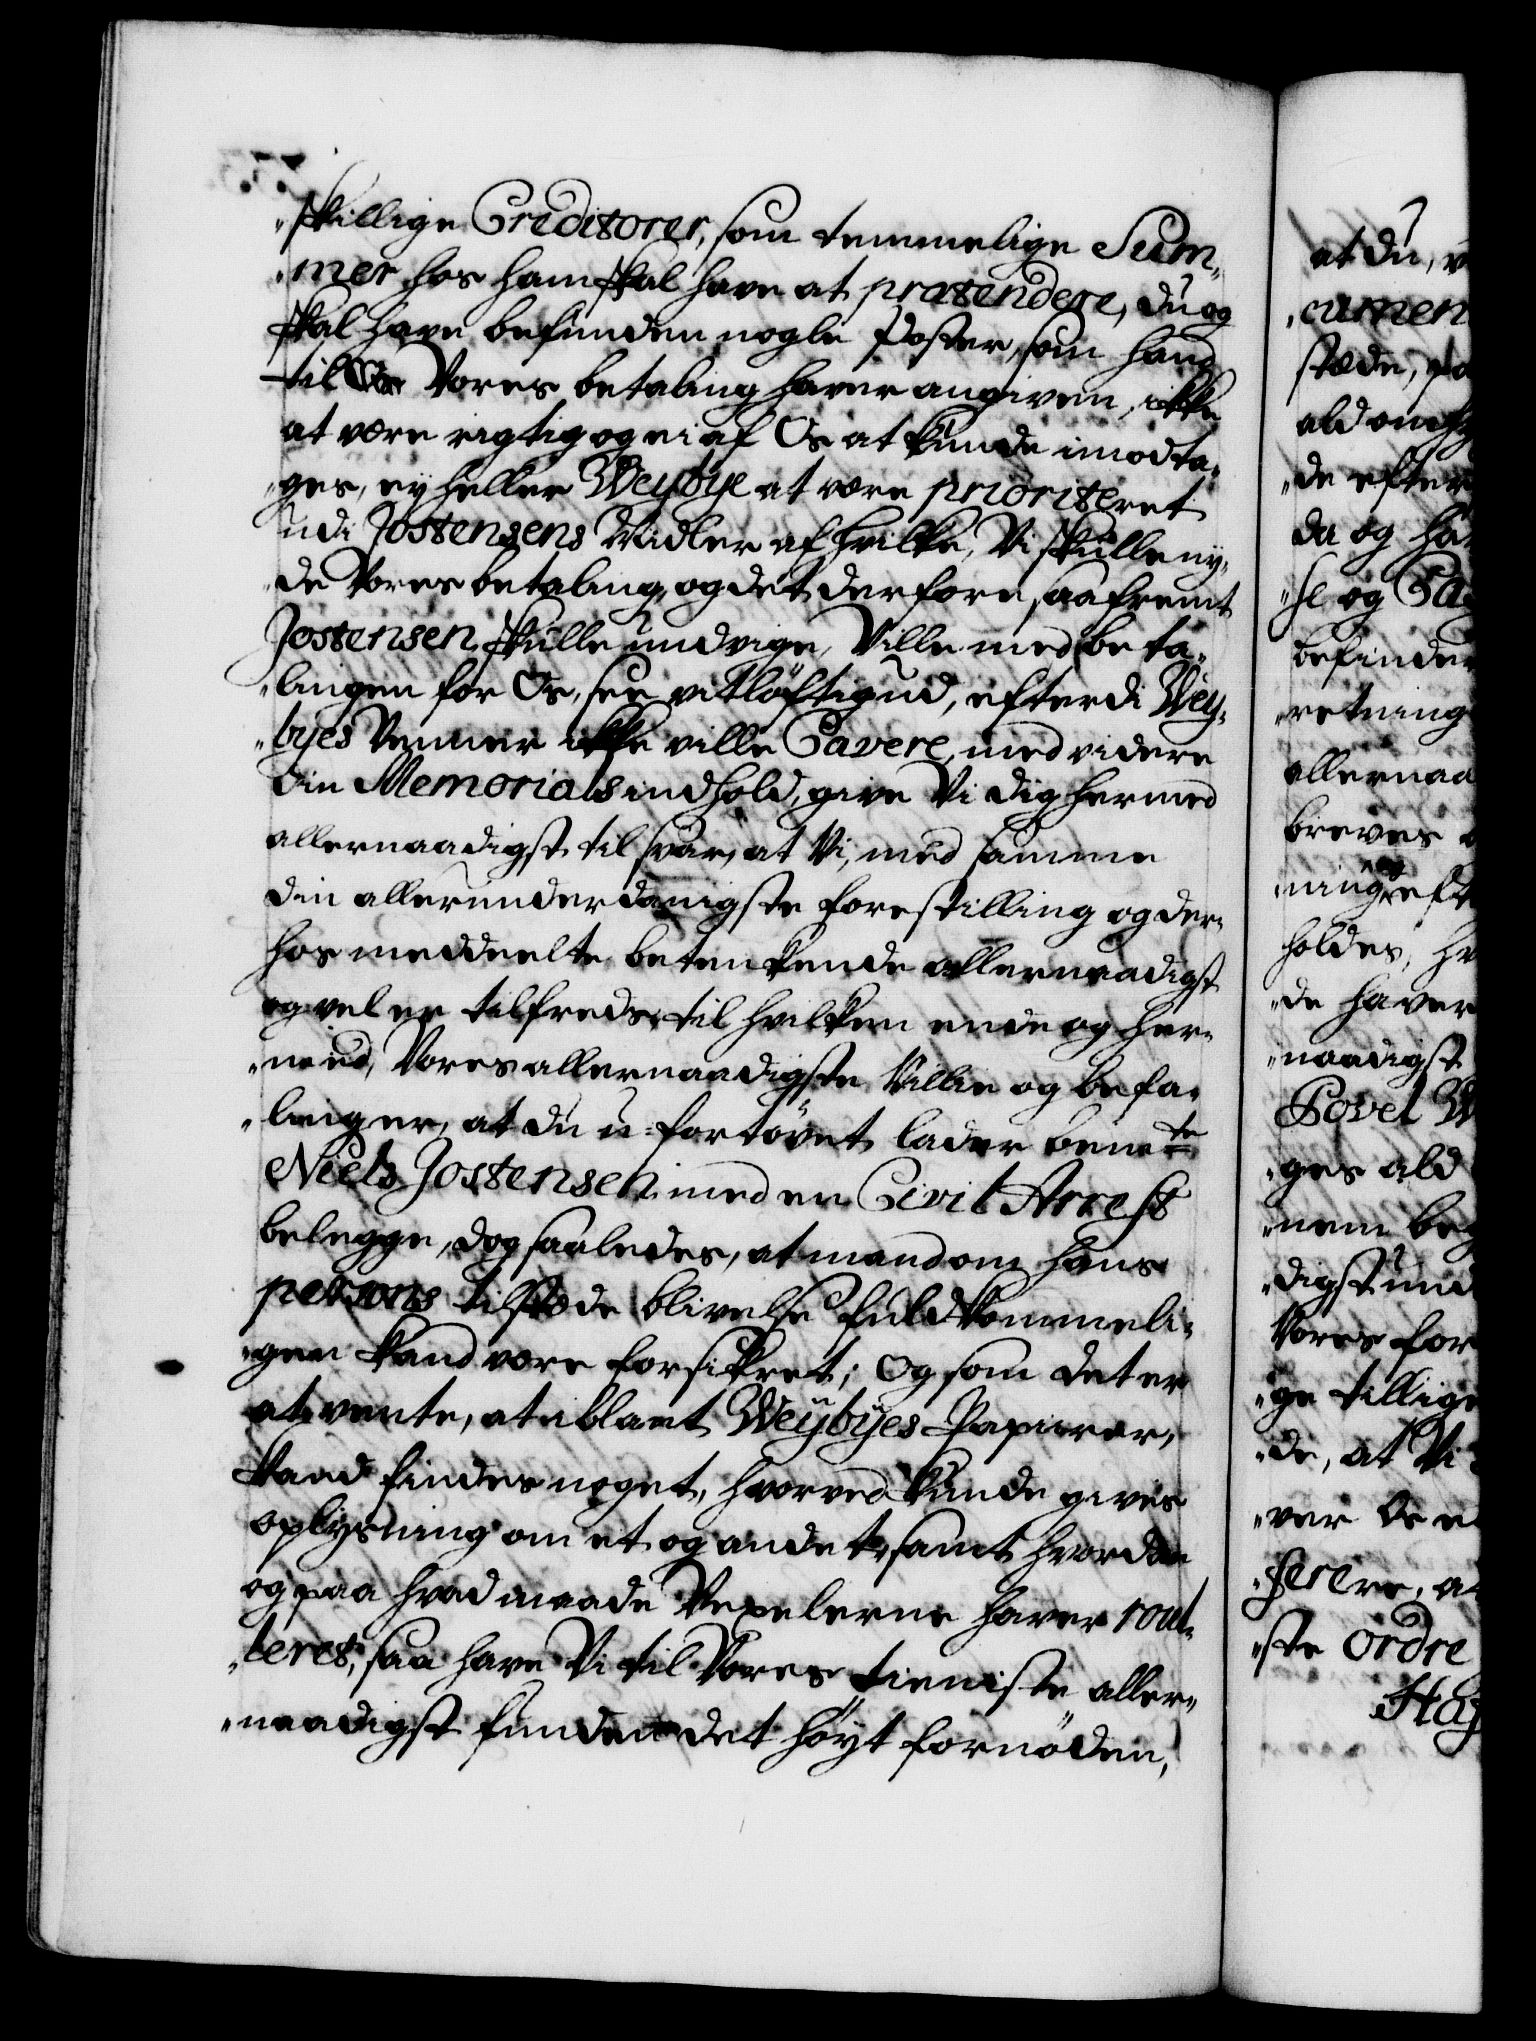 "skillige Creditorer, som temmelige Sum„
"mer hos ham skal have at prætendere, du og
skal have befunden nogle Poster, som hand
til Vores betaling haver angiven, ikke
at være rigtig og ei af Os at kunde imodta„
"ges, ey heller Weybye at være prioriteret
udi Jostensens Midler af hvilke, Vi skulle ny„
"de Vores betaling, og det derfore, saafremt
Jostensen skulle undvige, Ville med beta„
"lingen for Os, see vitløftig ud, efterdi Wey„
"byes Venner ikke ville Cavere, med videre
din Memorials indhold, give Vi dig hermed
allernaadigst til svar, at Vi, med samme
din allerunderdanigste forestilling og der„
hos meddeelte betenkende allernaadigst
og vel er tilfreds, til hvilken ende og her„
"med, Vores allernaadigste Villie og befa„
"ling er, at du u-fortøvet lader bemte
Niels Jostensen med en Civil Arrest
belegge, dog saaledes, at mand om hans
persons tilstæde blivelse fuldkommeli„
"gen kand være forsikret; Og som det er
at vente, at iblant Weybyes Papirer,
kand findes noget, hvorved kunde gives
oplysning om et og andet, samt hvordan
og paa hvad maade Vexelerne haver rou„
"leret, saa have Vi til Vores tieniste aller„
"naadigst funden det høyt fornøden,
at du, v
"cumen
stæde, pa
"de efter
da og ha
"se og Ca
befinder
"retning
allernaa
breves
"ning eft
holdes, hv
"de haver
"naadigst
Povel W
"ges ald
"nem beg
"digst und
Vores for
"ge tillige
"de, at Vi
"ver Os e
"serere, a
"ste ordre
Haf